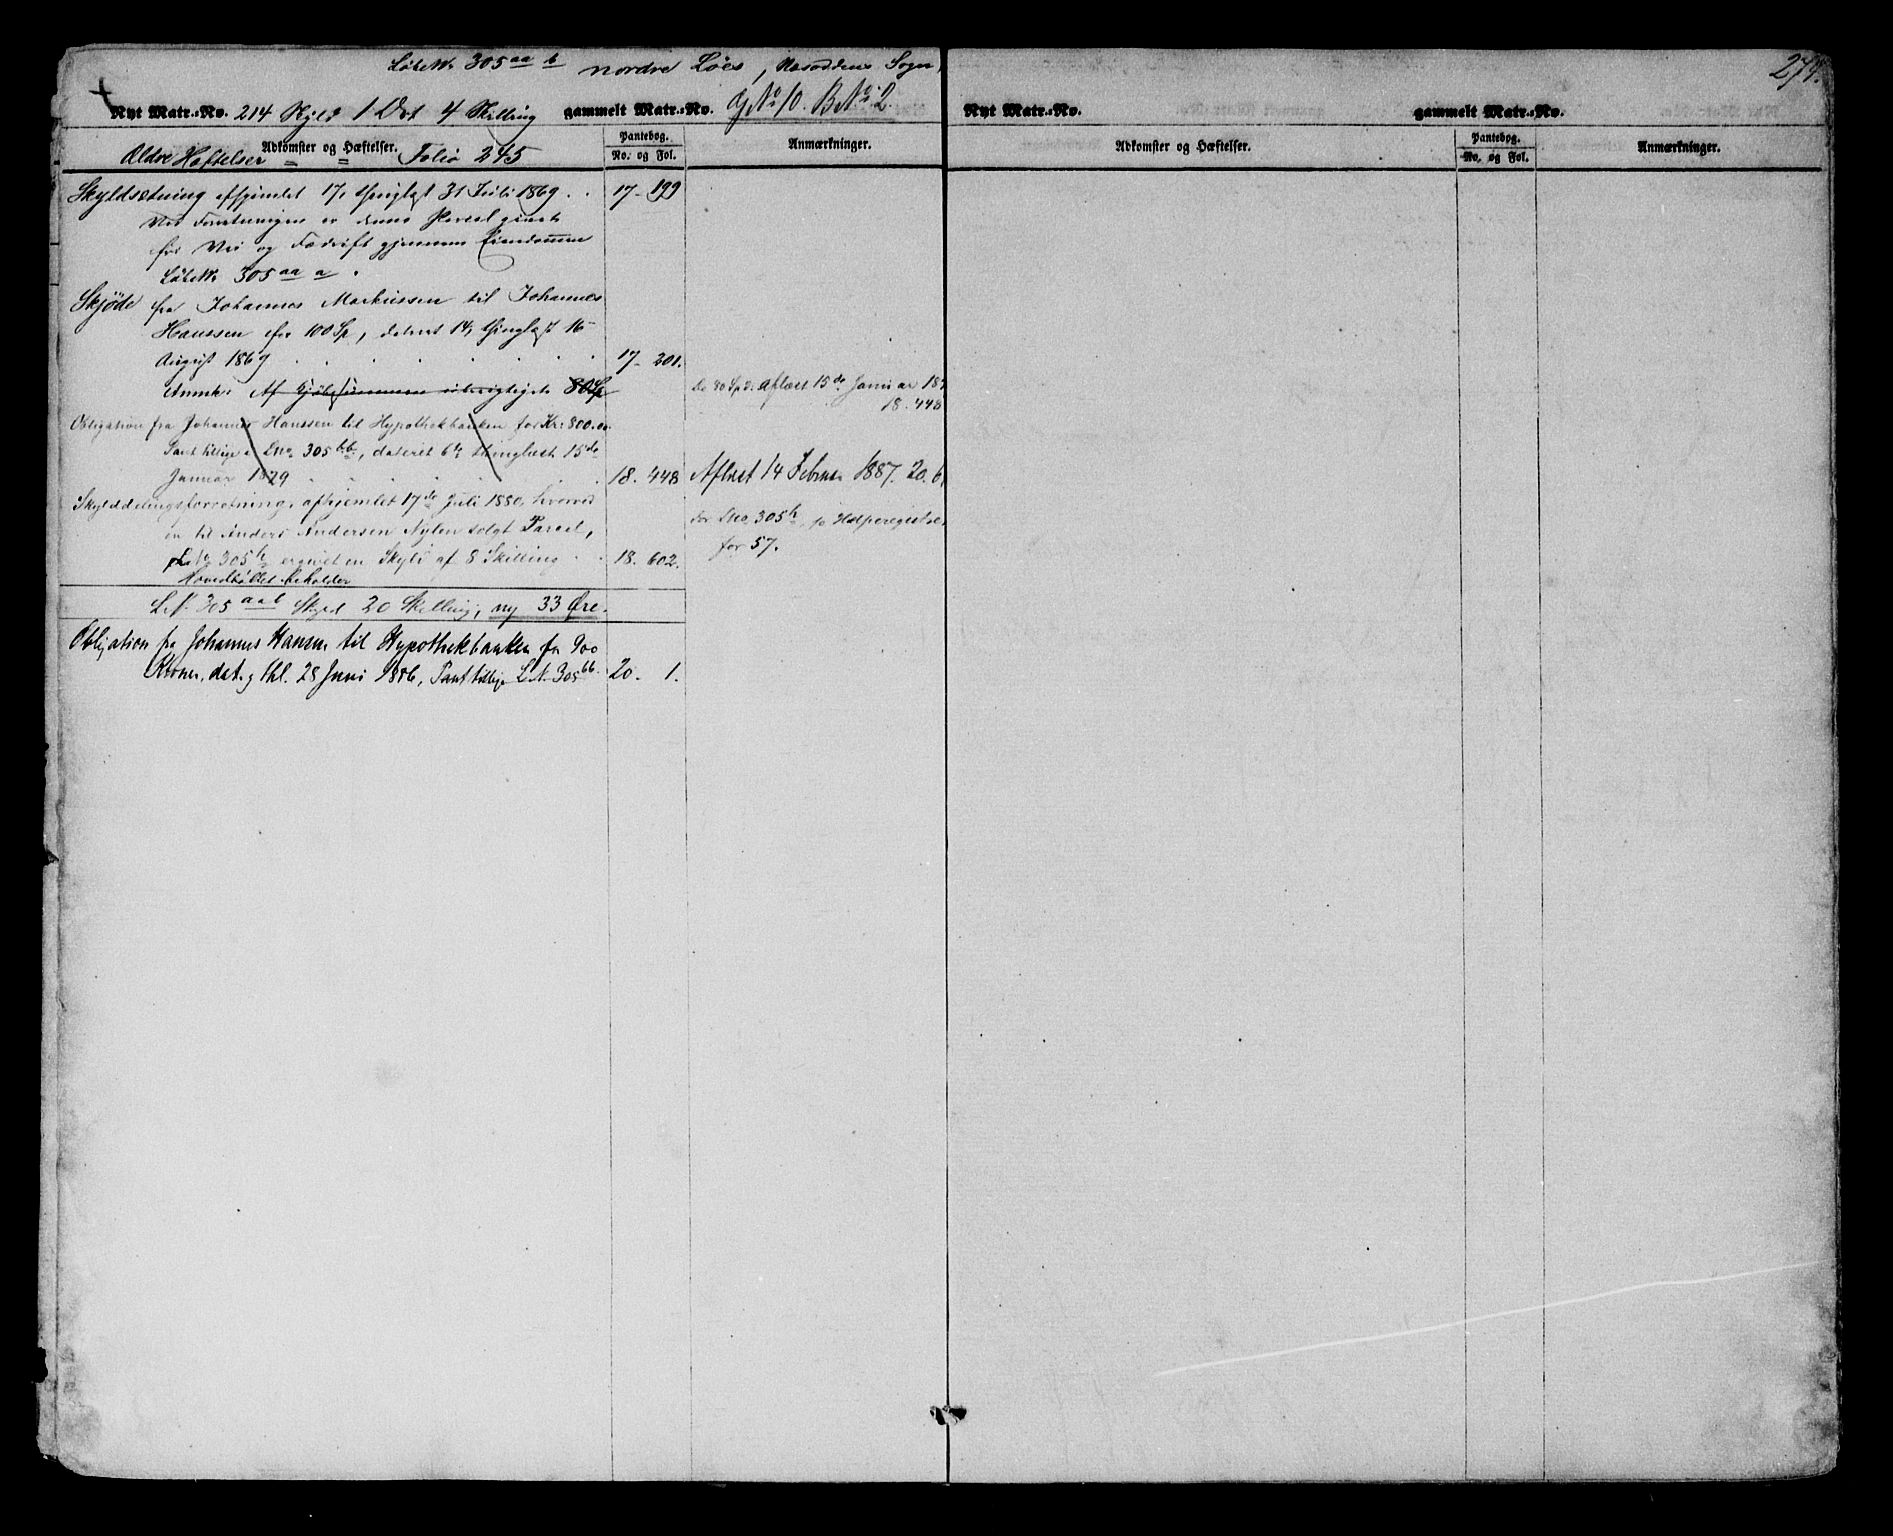 LøbeNr 305 aa b nordre Løes, Næsoddens Sogn,
274.
Nyt Matr.-No. 214 Skyld 1 Ort 4 Skilling gammelt Matr.-No. GNo 10. BNo 2.
Nyt Matr.-No. gammelt Matr.-No.
Adkomster og Hæftelser. Pantebog. No. og Fol. Anmærkninger.
Adkomster og Hæftelser. Pantebog. No. og Fol. Anmærkninger.
Ældre Heftelser " " Folio 245
Skyldsætning afhjemlet 17, thinglæst 31 Juli 1869 . . 17 - 199
Ved Forretningen er denne Parcel
for Vei og Fædrift gjennem Eiendommen
LøbeNr 305 aa a .
Skjøde fra Johannes Markussen til Johannes
Hanssen for 100 Sp, dateret 14, thinglyst 16
August 1869 . . . . . . 17 - 201.
Anmk: Af Kjøbesummen 80 Sp
De 80 Spd: aflæst 15de Januar 187
18. 448
Obligation fra Johannes Hanssen til Hypothekbanken for Kr: 800.00
Pant tillige i Lno 305 bb, dateret 6te thinglæst 15de
Januar 1879 . . . . . 18. 448 Aflæst 14 Februar 1887. 20. 6
Skylddelingsforretning, afhjemlet 17de Juli 1880, hvorved
en til Anders Andersen Nylen solgt Parcel,
for Lno, 305 h, jo Hælperegistre,
for 57.
LNo 305 h ergivet en Skyld af 8 Skilling . . 18. 602.
Hovedbøllet beholder
LN. 305 aab Skyld 20 Skilling, ny 33 Øre.
Obligation fra Johannes Hansen til Hypothekbanken for 900
Kroner, dat. g thl. 28 Juni 1886, Pant tillige LN. 305 bb. 20. 1.